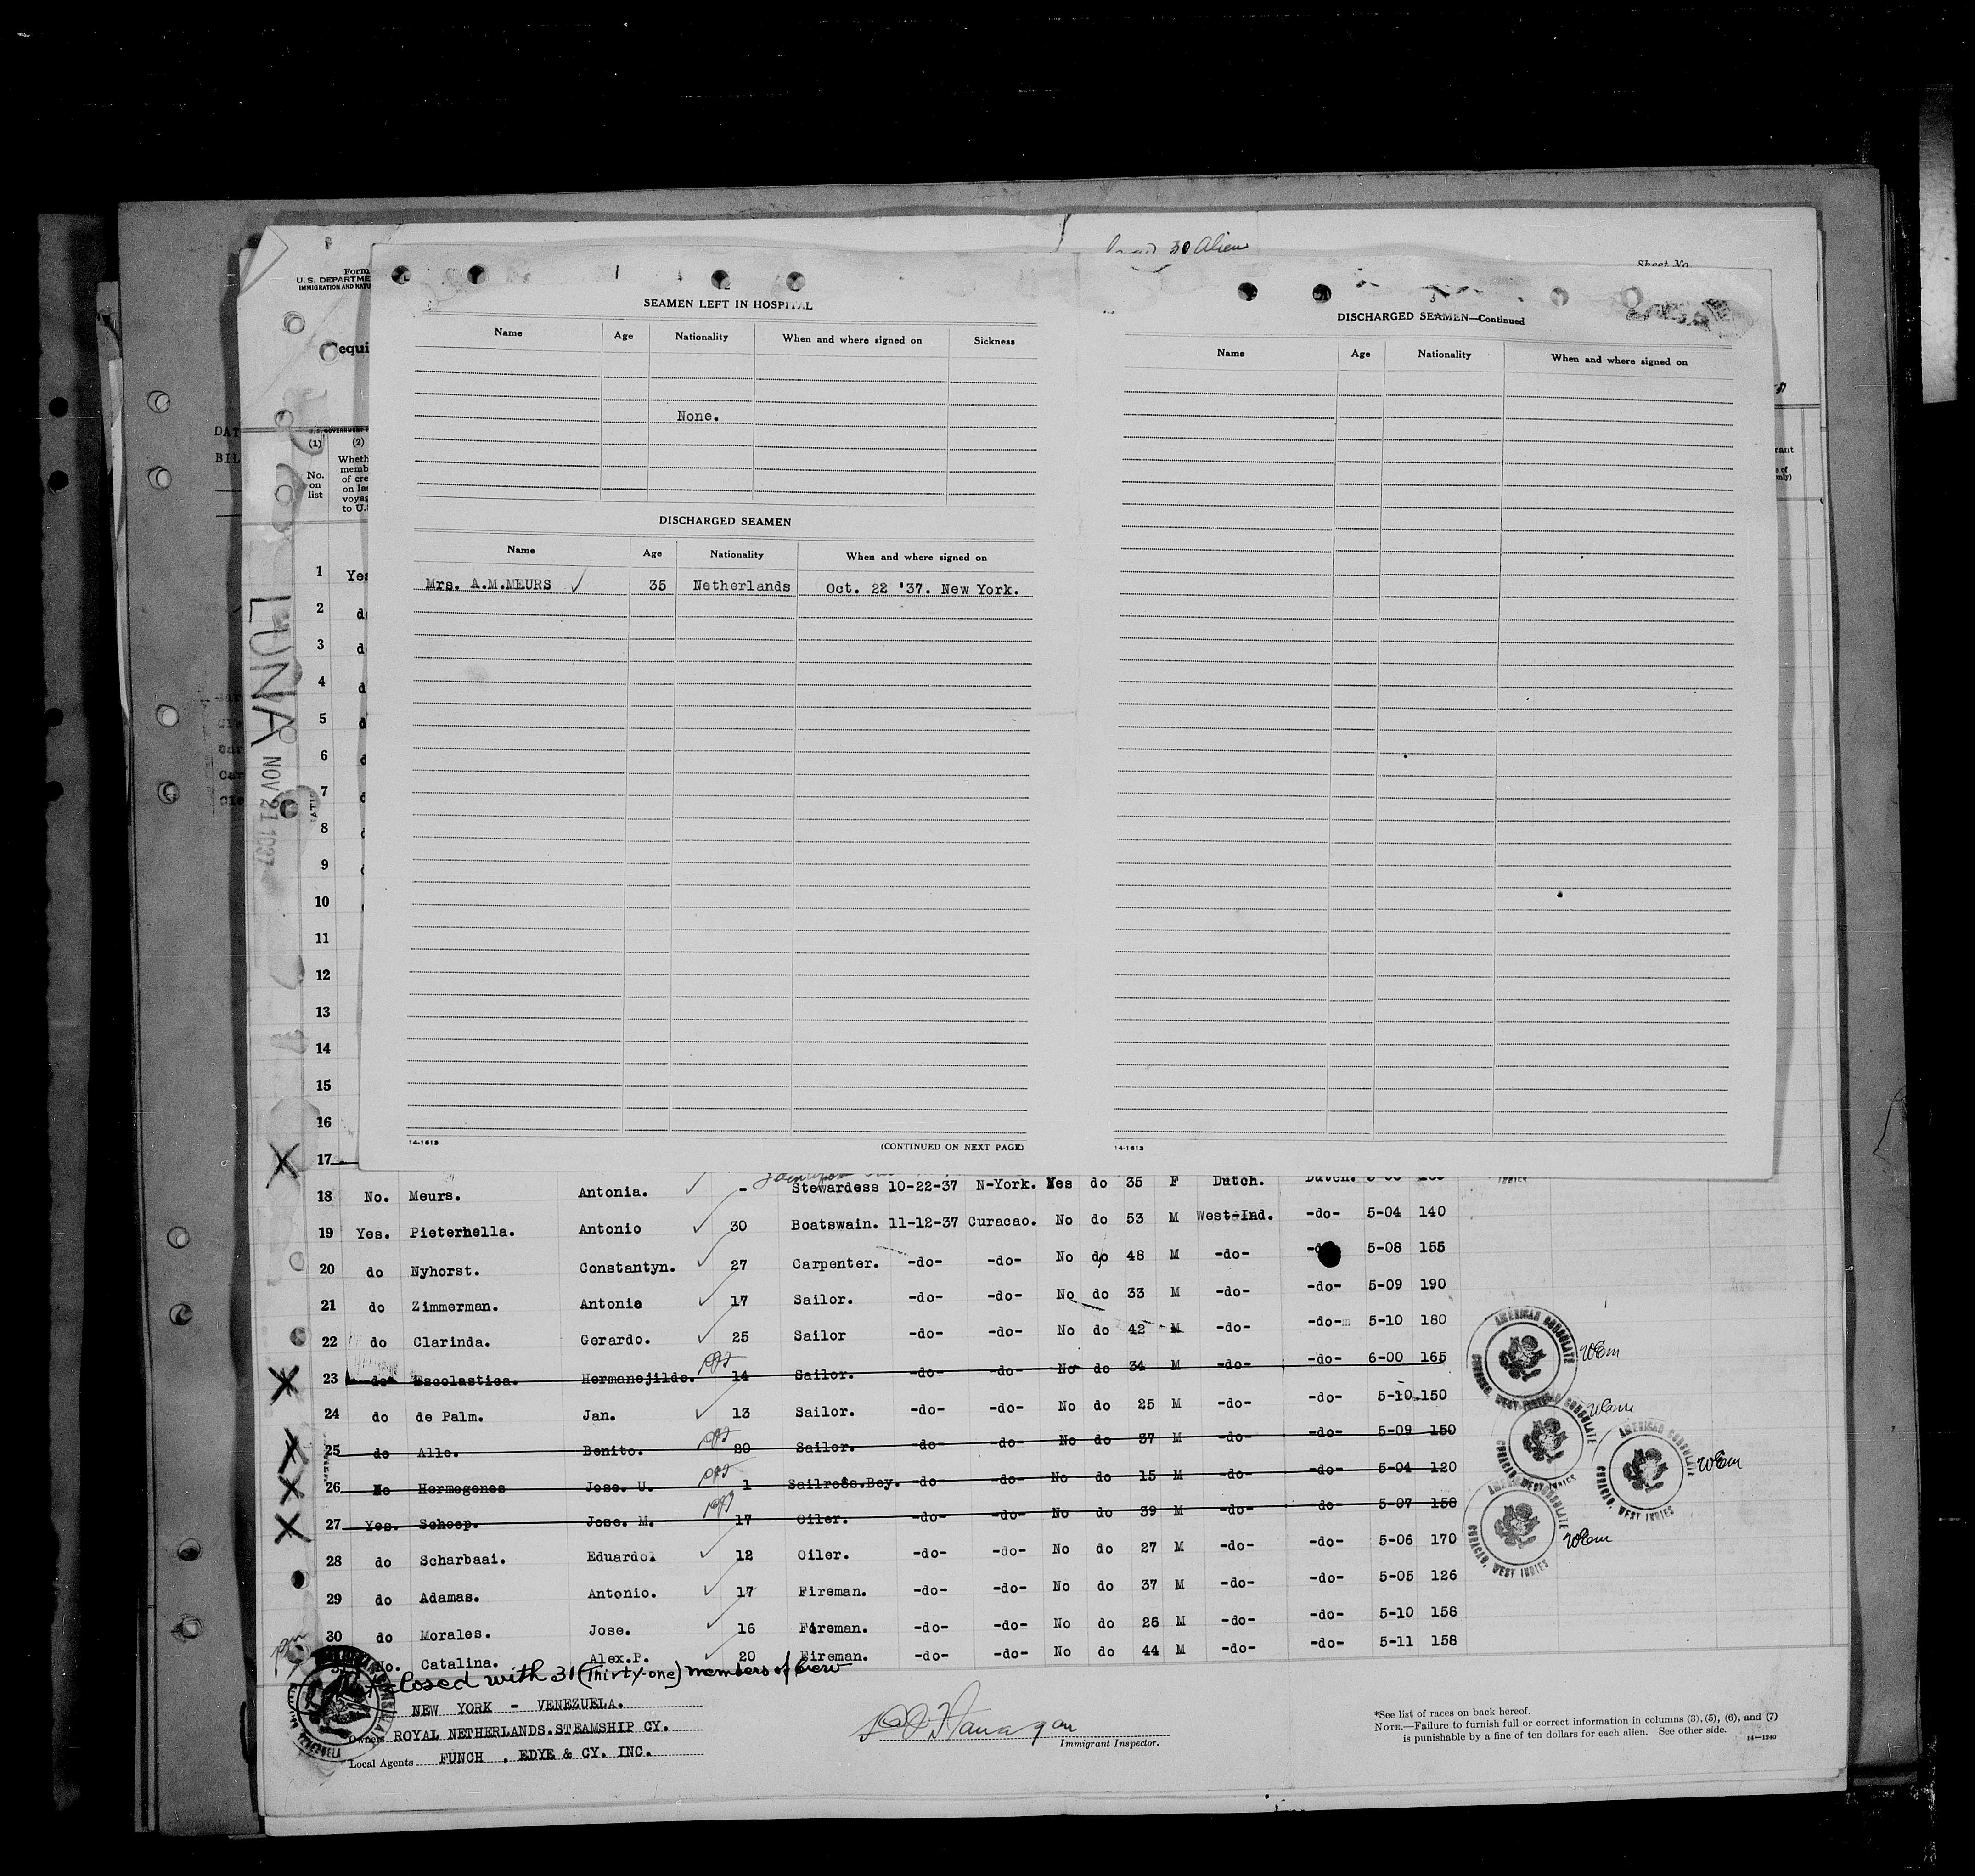 30 Alien
Sheet No.
Form
U. S. DEPARTME
IMMIGRATION AND NATU
equi
DAT
BIL
SEAMEN LEFT IN HOSPITAL
Name Age Nationality When and where signed on Sickness
None.
DISCHARGED SEAMEN
Name Age Nationality When and where signed on
Mrs. A.M.MEURS ✓ 35 Netherlands Oct. 22 '37. New York.
(CONTINUED ON NEXT PAGE)
14-1613
3
DISCHARGED SEAMEN—Continued
Name Age Nationality When and where signed on
14-1613
(1) (2)
No. on list
Wheth
memb
of cre
on las
voyag
to U.S
LUNA NOV 21 1937
1 Yes
2 d
3 d
4 d
5 d
6 d
7 d
8
9
10
11
12
13
14
15
16
X 17
18 No. Meurs. Antonia. ✓ - Stewardess 10-22-37 N-York. Yes do 35 F Dutch. Dutch.
19 Yes. Pieternella. Antonio ✓ 30 Boatswain. 11-12-37 Curacao. No do 53 M West-Ind. -do- 5-04 140
20 do Nyhorst. Constantyn. ✓ 27 Carpenter. -do- -do- No do 48 M -do- -do- 5-08 155
21 do Zimmerman. Antonio ✓ 17 Sailor. -do- -do- No do 33 M -do- -do- 5-09 190
22 do Clarinda. Gerardo. ✓ 25 Sailor -do- -do- No do 42 M -do- -do- 5-10 180
X 23 do Escolastica. Hermanejildo. 14 Sailor. -do- -do- No do 34 M -do- -do- 6-00 165
24 do de Palm. Jan. ✓ 13 Sailor. -do- -do- No do 25 M -do- -do- 5-10 150
X 25 do Alle. Benito. 20 Sailor. -do- -do- No do 37 M -do- -do- 5-09 150
X 26 No Hermogenes Jose. U. 1 Sailross.Boy. -do- -do- No do 15 M -do- -do- 5-04 120
X 27 Yes. Schoop. Jose. M. 17 Oiler. -do- -do- No do 39 M -do- -do- 5-07 158
28 do Scharbaai. Eduardo. ✓ 12 Oiler. -do- -do- No do 27 M -do- -do- 5-06 170
29 do Adamas. Antonio. ✓ 17 Fireman. -do- -do- No do 37 M -do- -do- 5-05 126
30 do Morales. Jose. ✓ 16 Fireman. -do- -do- No do 26 M -do- -do- 5-10 158
No. Catalina. Alex.P. ✓ 20 Fireman. -do- -do- No do 44 M -do- -do- 5-11 158
AMERICAN CONSULATE CURACAO, WEST INDIES
AMERICAN CONSULATE CURACAO, WEST INDIES
AMERICAN CONSULATE CURACAO, WEST INDIES
AMERICAN CONSULATE CURACAO, WEST INDIES
closed with 31 (Thirty-one) members of crew
NEW YORK - VENEZUELA.
Owners ROYAL NETHERLANDS.STEAMSHIP CY.
Local Agents FUNCH , EDYE & CY. INC.
VENEZUELA
Immigrant Inspector.
*See list of races on back hereof.
NOTE.—Failure to furnish full or correct information in columns (3), (5), (6), and (7)
is punishable by a fine of ten dollars for each alien. See other side.
14—1240